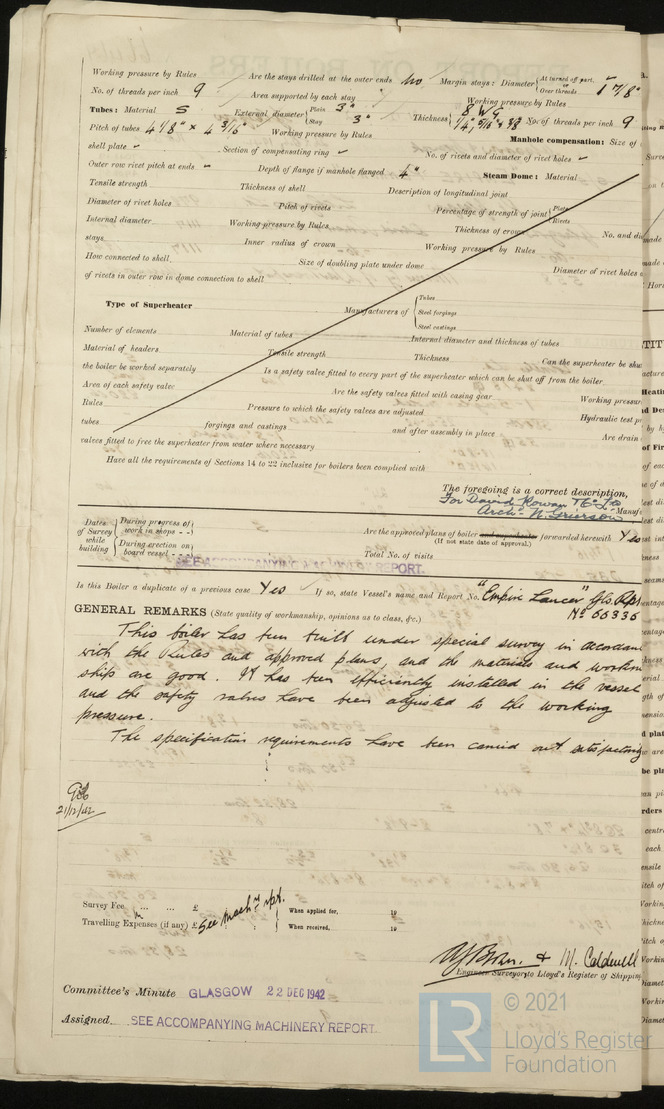 Working pressure by Rules Are the stays drilled at the outer ends No Margin stays: Diameter { At turned off part, or Over threads 1 7/8"
No. of threads per inch 9 Area supported by each stay Working pressure by Rules
Tubes: Material S External diameter { Plain 3" Stay 3" Thickness { 8 WG 1/4", 5/16" & 3/8 No. of threads per inch 9
Pitch of tubes 4 1/8" x 4 3/16" Working pressure by Rules Manhole compensation: Size of
shell plate Section of compensating ring No. of rivets and diameter of rivet holes
Outer row rivet pitch at ends Depth of flange if manhole flanged 4" Steam Dome: Material
Tensile strength Thickness of shell Description of longitudinal joint
Diameter of rivet holes Pitch of rivets Percentage of strength of joint { Plate Rivets
Internal diameter Working pressure by Rules Thickness of crown No. and di
stays Inner radius of crown Working pressure by Rules
How connected to shell Size of doubling plate under dome Diameter of rivet holes
of rivets in outer row in dome connection to shell
Type of Superheater Manufacturers of { Tubes Steel forgings Steel castings
Number of elements Material of tubes Internal diameter and thickness of tubes
Material of headers Tensile strength Thickness Can the superheater be shu
the boiler be worked separately Is a safety valve fitted to every part of the superheater which can be shut off from the boiler
Area of each safety valve Are the safety valves fitted with easing gear Working pressur
Rules Pressure to which the safety valves are adjusted Hydraulic test p
tubes forgings and castings and after assembly in place Are drain
valves fitted to free the superheater from water where necessary
Have all the requirements of Sections 14 to 22 inclusive for boilers been complied with
The foregoing is a correct description,
For David Rowan & Co Ltd
Archd N. Grierson Manuf
Dates of Survey while building { During progress of work in shops - - During erection on board vessel - - -
Are the approved plans of boiler and superheater forwarded herewith Yes
(If not state date of approval.)
Total No. of visits
SEE ACCOMPANYING MACHINERY REPORT.
Is this Boiler a duplicate of a previous case Yes If so, state Vessel's name and Report No. "Empire Lancer" Gls. Rpt
No 66336
GENERAL REMARKS (State quality of workmanship, opinions as to class, &c.)
This boiler has been built under special survey in accordance
with the Rules and approved plans, and the materials and workm
ship are good. It has been efficiently installed in the vessel
and the safety valves have been adjusted to the working
pressure.
The specification requirements have been carried out satisfactorily
21/12/42
Survey Fee ... ... £ See Mach'y rpt. When applied for, 19
Travelling Expenses (if any) £ When received, 19
& M. Caldwell
Engineer Surveyor to Lloyd's Register of Shipping
Committee's Minute GLASGOW 22 DEC 1942
Assigned SEE ACCOMPANYING MACHINERY REPORT.
© 2021
LR Lloyd's Register
Foundation